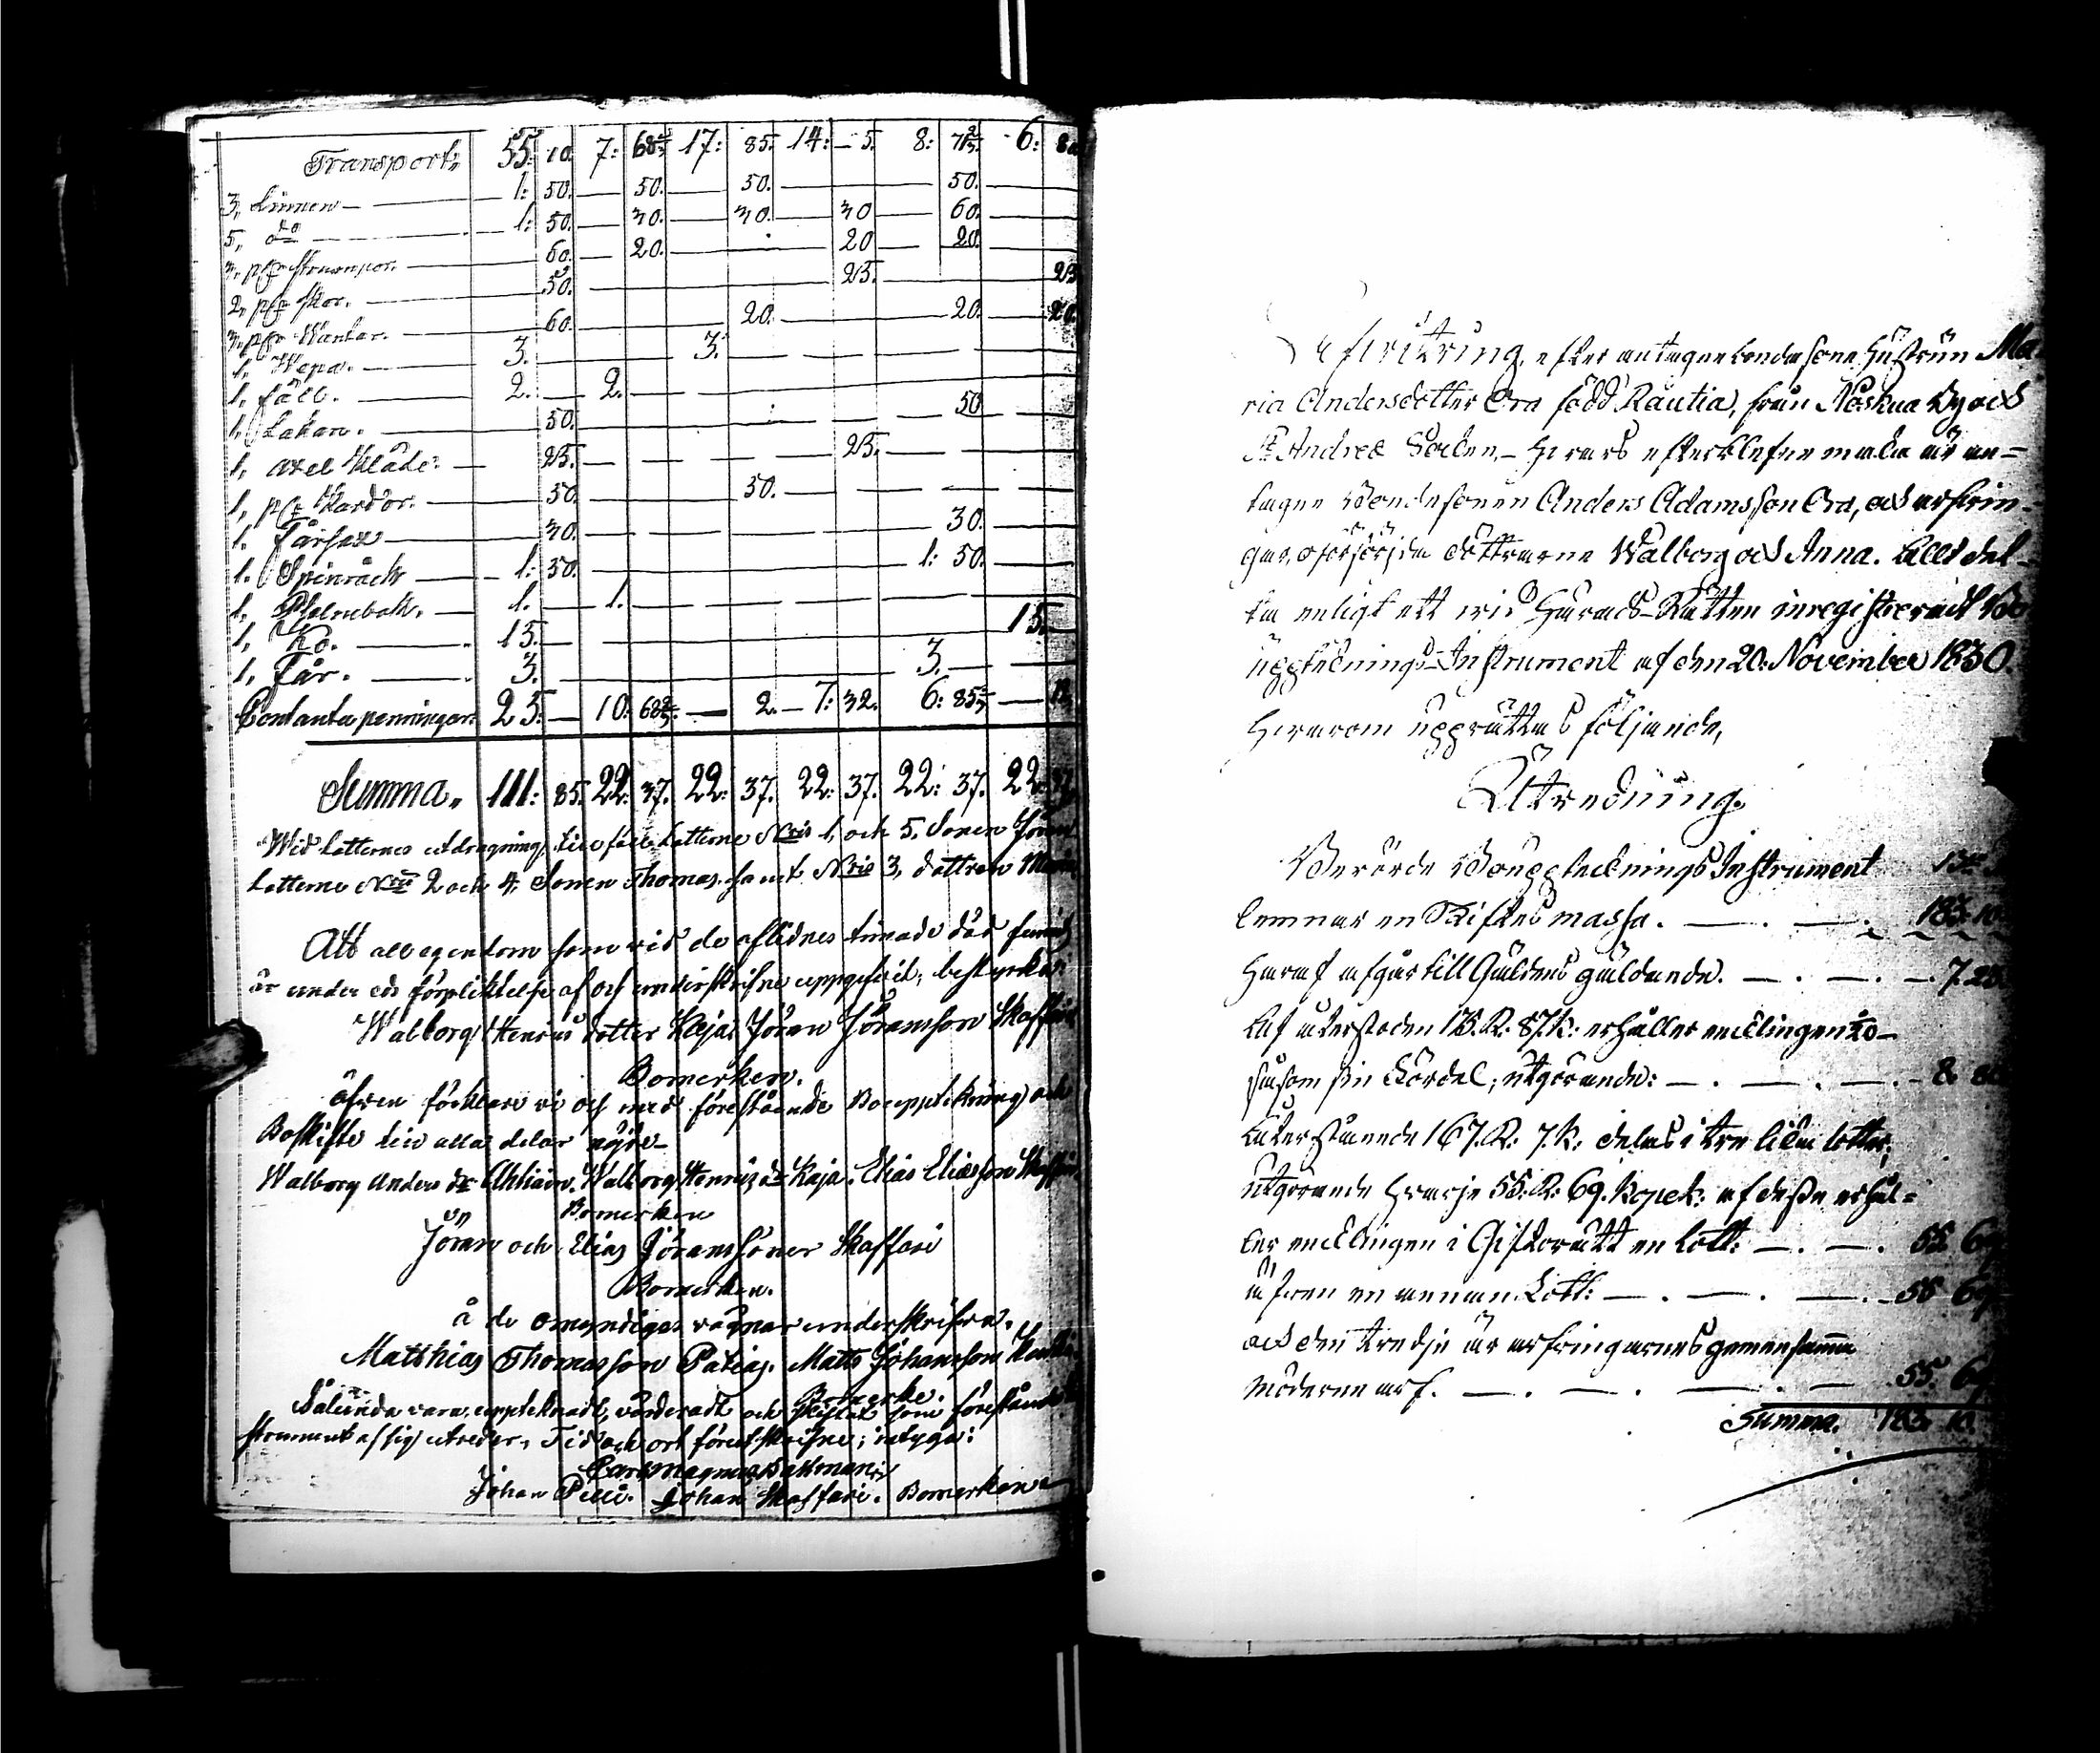 Transport: 55. 10. 7: 68 2/3 17: 85. 14: — 5. 8: 71 2/3 6: 80
3, Linnen — 1: 50. — 50. — 50. — 50.
5, do — 1: 50. — 30. — 30. — 30 — 60.
3, par Strumpor. — 60. — 20. — 20 — 20.
2, par Skor. — 50. — 25. — 25
3, par Wantar. — 60. — 20. — 20. — 20.
1. Wepa. — 3. — 3.
1, fäll. — 2. — 2.
1, Lakan. — 50. — 50
1, axel kläde. — 25. — 25.
1, par Kardor. — 50. — 50.
1. Fårsax — 30. — 30.
1. Spinråck — 1: 50. — 1: 50.
1, Psalmbok. — 1. — 1.
1, Ko. — 15. — 15.
1, Får. — 3. — 3.
Contanta penningar. 25. — 10: 68 2/3. — 2. — 7: 32. 6: 85 2/3 —
Summa. 111: 85. 22: 37. 22: 37. 22: 37. 22: 37. 22: 37.
Wid lotternes utdragning, tillföll lotterne Nris 1, och 5, Sonen Jöran
lotterne Nris 2 och 4, Sonen Thomas samt Nris 3, dottren Maria
Att all egendom som vid de aflidnes timade död funnits
är under eds förpliktelse af oss underskrifne uppgifvit, bestyrkes:
Walborg Henrics dotter Kaja. Jöran Jöransson Skaffari
Bomerken.
äfven förklara vi oss med förestående Bouppteckning och
Boskifte till alla delar nöjde —
Walborg Anders dr Ahtiain. Walborg Henrics dr Kaja. Elias Eliasson Skaffari
Bomerken
Jöran och Elias Jöranssöner Skaffari
Bomerken.
å de omyndiges vägnar underskrifva.
Matthias Thomasson Patias. Matts Johansson
Bomerke.
Sålunda vara upptecknadt, värderadt och skiftat som förestående In
strument af sig utreder, Tid och ort förutskrifne; intyga:
Carl Magnus
Johan Pelli. Johan Skaffari. Bomerken
Afvittring, efter antagne bondesone hustrun Ma
ria Andersdotter Ora född Rautia, från Noskua By och
St Andreæ Socken, — hvars efterlefvne maka är an —
tagne Bondesonen Anders Adamsson Ora, och arfvin-
gar, oförsörjda döttrarne Walborg och Anna. Allt det-
ta enligt ett vid Härads-Rätten inregistreradt Bo
uppteknings-Instrument af den 20. November 1830.
hvarom upprättas följande,
Utredning.
Berörde Bouppteckningsinstrument
lemnar en Skiftes massa. — . — . 183. 10.
häraf afgår till Gäldens gäldande. — . — . — 7. 23
Af återstoden 175. R: 87. K: erhåller encklingen 1/20 —
såsom sin Fördel; utgörande: — . — . — . 8. 80
Återstående 167. R: 7. K: delas i tre lika lotter,
utgörande hvarje 55. R: 69. Kopek: af dessa erhål=
ler encklingen i Giftorätt en lott: — . — . 55. 69.
äfven en annan Lott: — . — . — . 55. 69.
och den tredje är arfvingarnes gemensamma
möderne arf. — . — . — . — . 55. 69.
Summa. 183. 10.